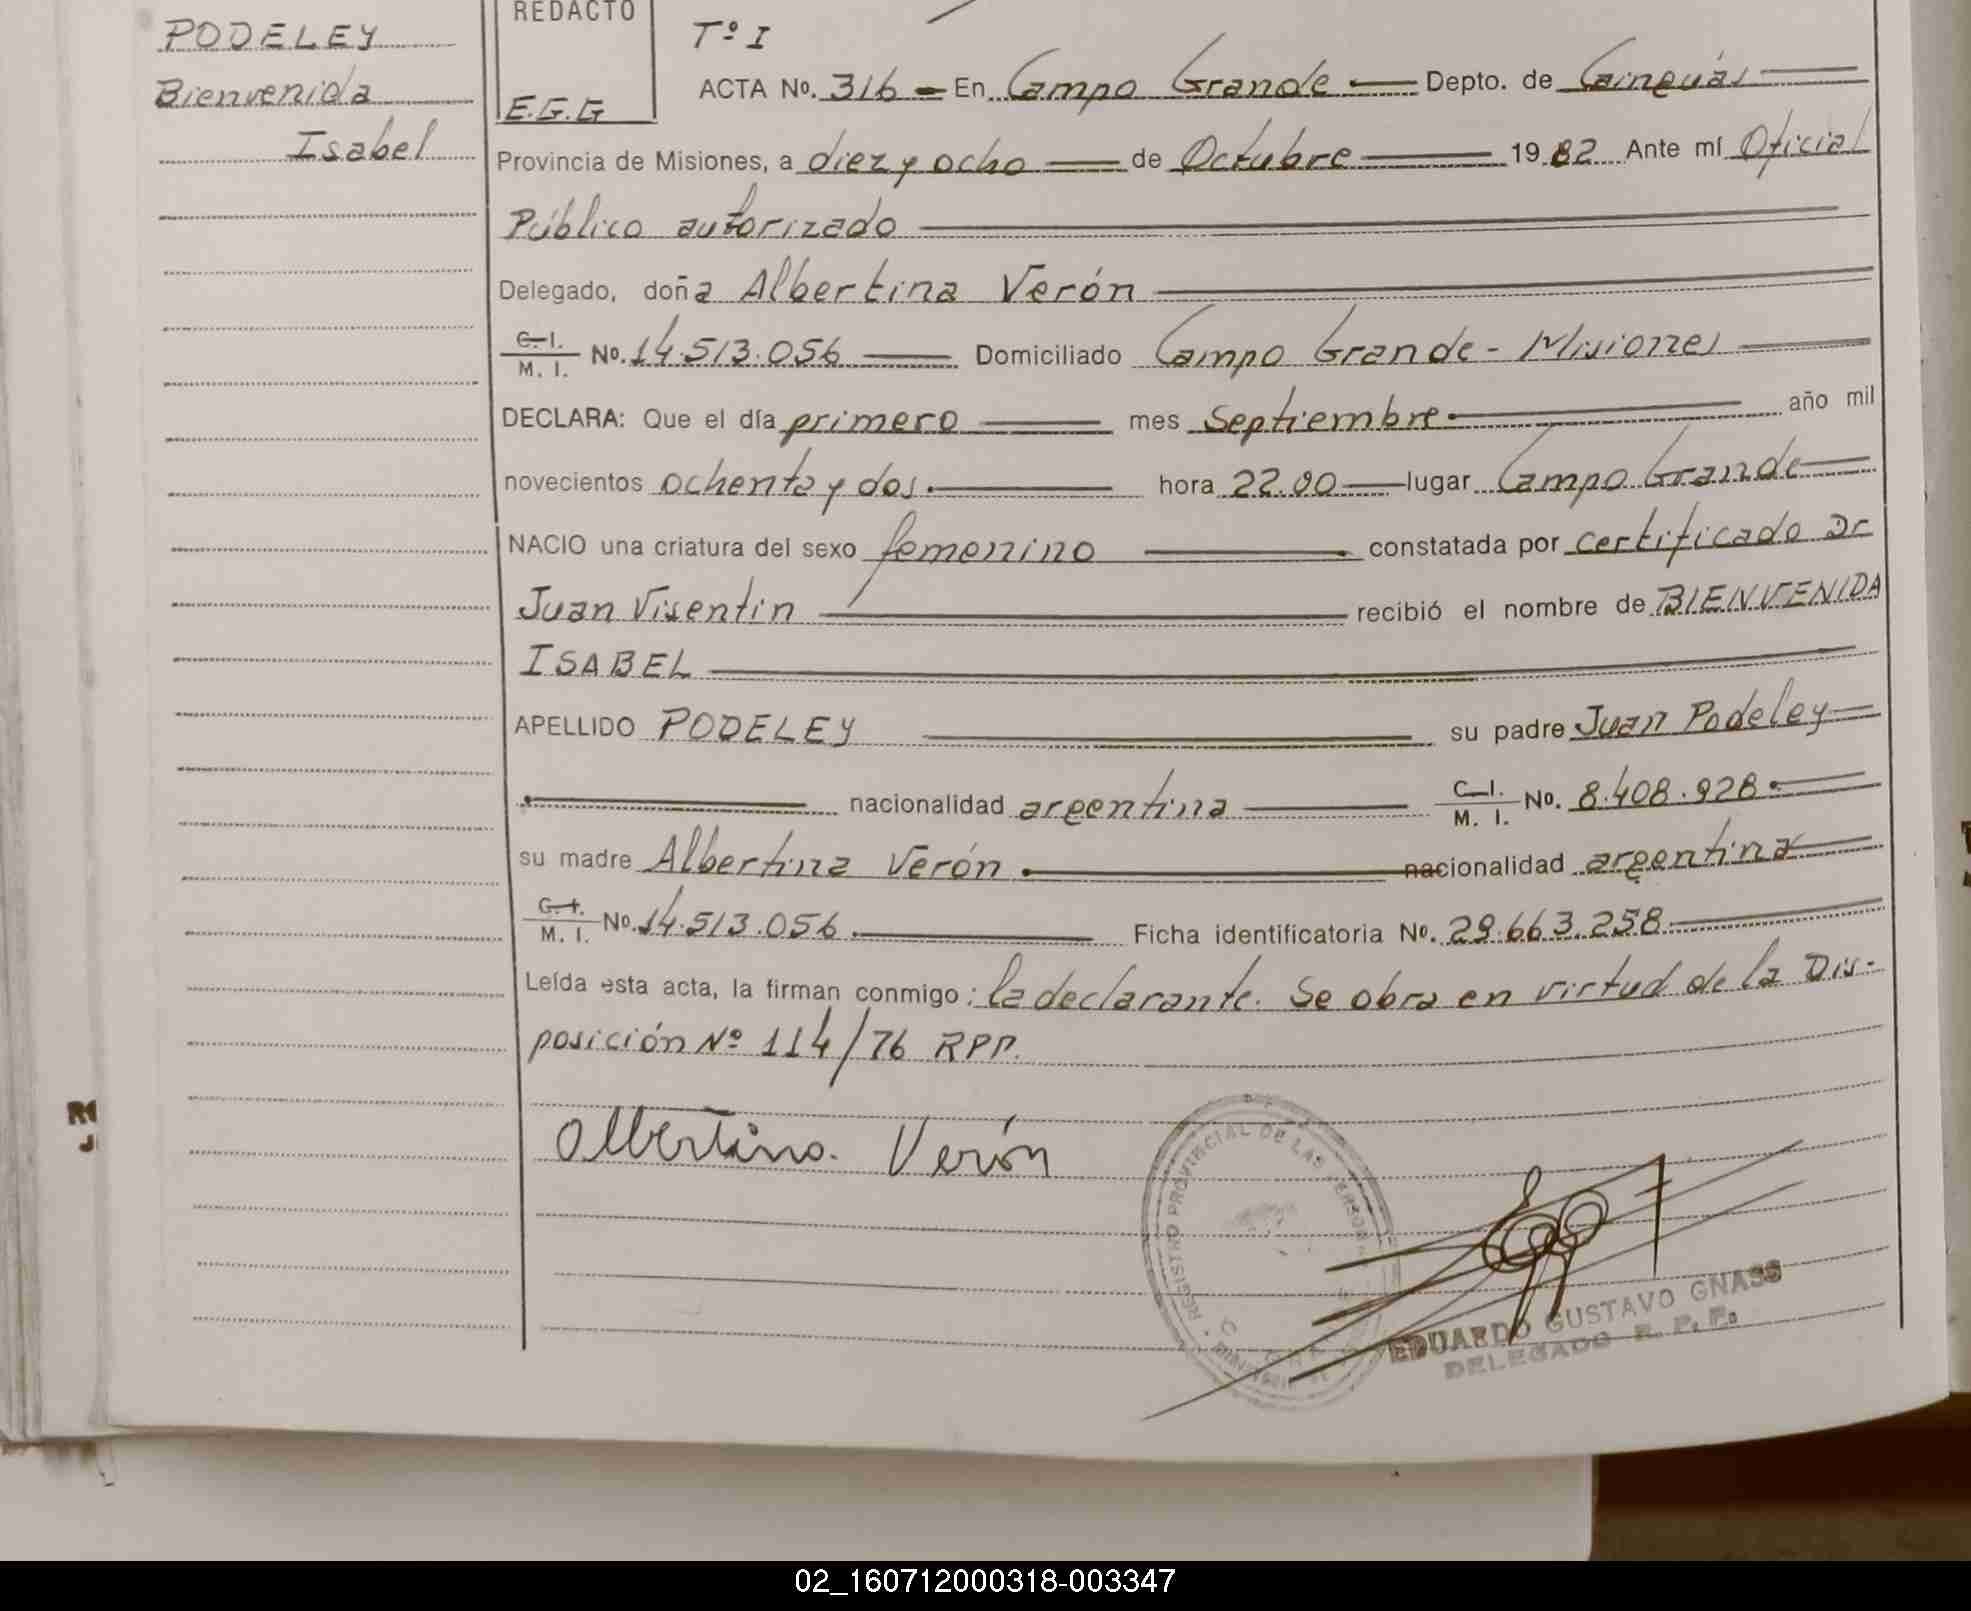 PODELEY
Bienvenida
Isabel
REDACTO
E.G.G
Tº I
ACTA No. 316 En Campo Grande Depto. de Cainguás
Provincia de Misiones, a diez y ocho de Octubre 1982 Ante mí Oficial
Público autorizado
Delegado, doña Albertina Verón
C.I. / M. I. No. 14.513.056 Domiciliado Campo Grande - Misiones
DECLARA: Que el día primero mes Septiembre año mil
novecientos ochenta y dos. hora 22.00 lugar Campo Grande
NACIO una criatura del sexo femenino constatada por certificado Dr
Juan Visentin recibió el nombre de BIENVENIDA
ISABEL
APELLIDO PODELEY su padre Juan Podeley
nacionalidad argentina C.I. / M. I. No. 8.408.928
su madre Albertina Verón nacionalidad argentina
C.I. / M. I. No. 14.513.056. Ficha identificatoria No. 29.663.258
Leída esta acta, la firman conmigo: la declarante. Se obra en virtud de la Dis-
posición Nº 114/76 RPP.
Albertina Verón
REGISTRO PROVINCIAL DE LAS PERSONAS
EDUARDO GUSTAVO GNASS
DELEGADO R. P. P.
02_160712000318-003347